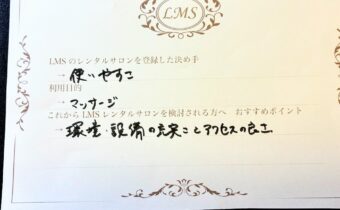 LMS
LMSのレンタルサロンを登録した決め手
→使いやすさ
利用目的
→マッサージ
これからLMSレンタルサロンを検討される方へ おすすめポイント
→環境・設備の充実ことアクセスの良さ。